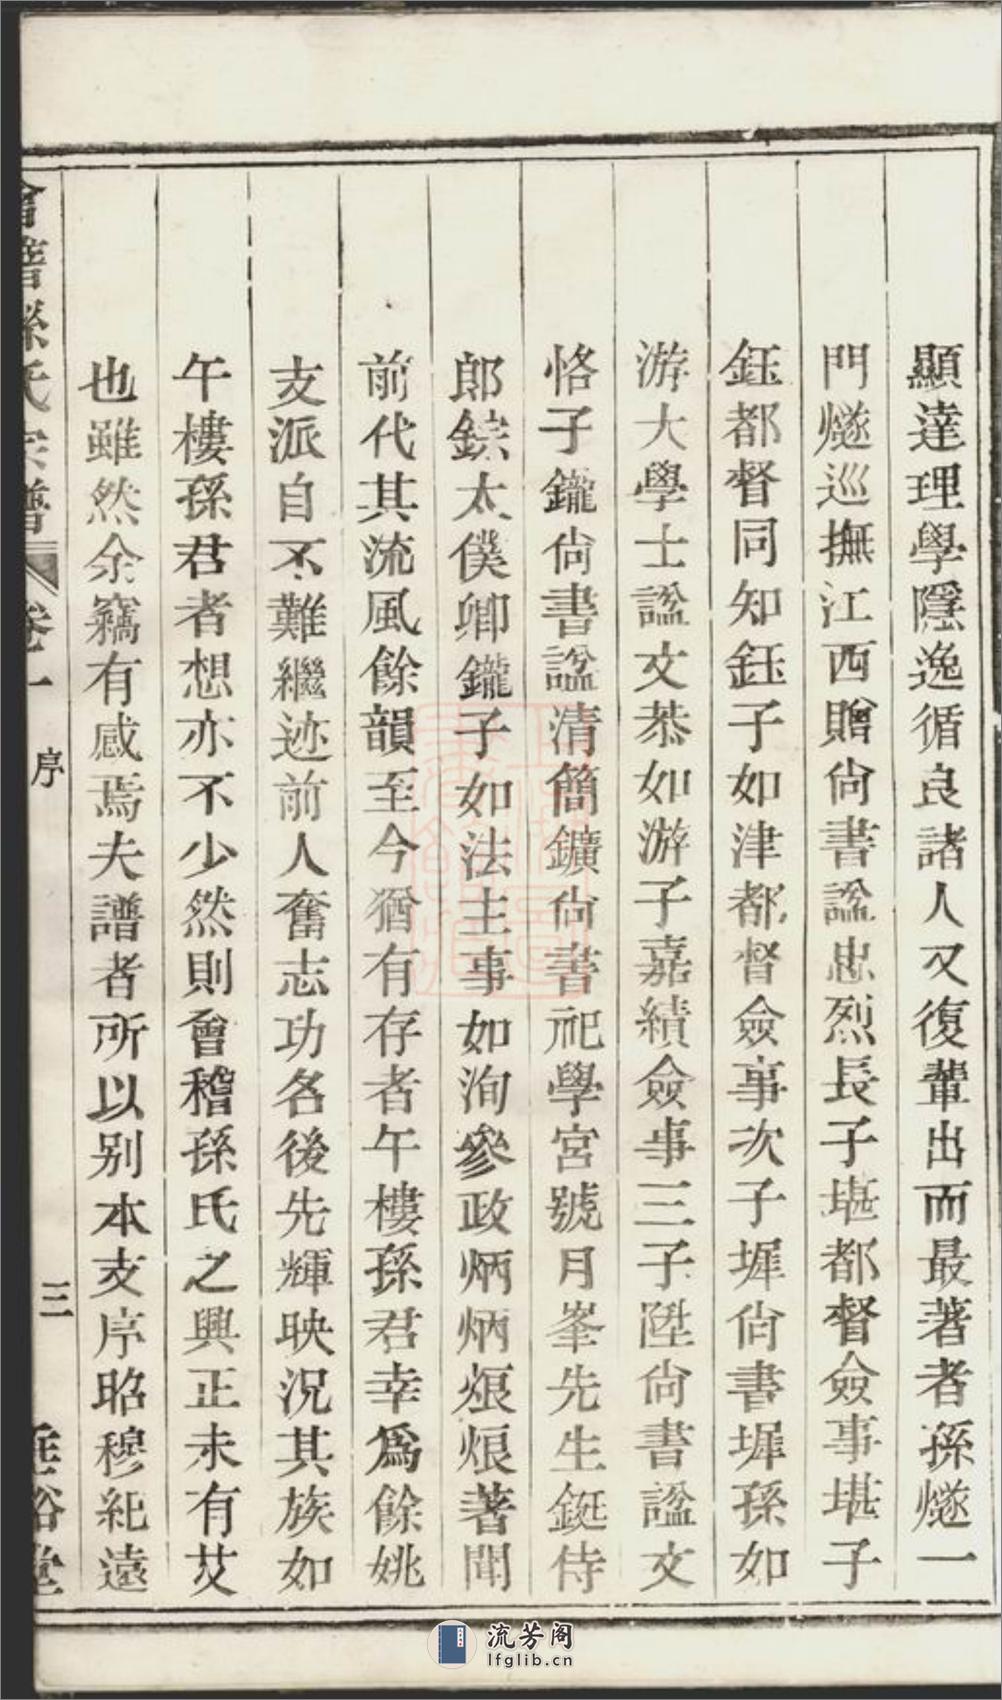 顯達理學隱逸循良諸人又復輩出而最著者孫燧一
門燧巡撫江西贈尙書諡忠烈長子堪都督僉事堪子
鈺都督同知鈺子如津都督僉事次子墀尙書墀孫如
游大學士諡文恭如游子嘉績僉事三子陞尙書諡文
恪子鑨尙書諡清簡鑛尙書祀學宮號月峯先生鋌侍
郎錝太僕卿鑨子如法主事如洵參政炳炳烺烺著聞
前代其流風餘韻至今猶有存者午樓孫君幸爲餘姚
支派自不難繼迹前人奮志功名後先輝映況其族如
午樓孫君者想亦不少然則會稽孫氏之興正未有艾
也雖然余竊有感焉夫譜者所以别本支序昭穆紀遠
會稽孫氏宗譜 卷一 序 三 垂裕堂
流芳阁
lfglib.cn